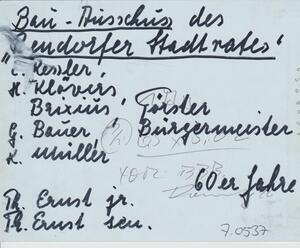 Bau-Ausschuss des
Bendorfer Stadtrates
Kessler,
H. Klövers
Brixius, Förster
G. Bauer, Bürgermeister
K. Müller
60er Jahre
Th. Ernst jr.
Th. Ernst sen.
7.0537